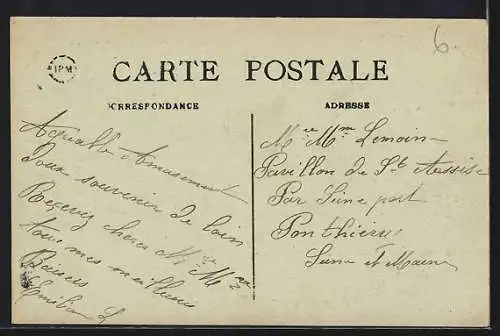 6.
IPM
CARTE POSTALE
CORRESPONDANCE
ADRESSE
Amusement
Doux souvenir de loin
Recevez chers Mr Mme
tous mes meilleurs
Baisers
Mr Mme Lemoine
Pavillon de Ste Assise
Par Seine port
Ponthierry
Seine et Marne